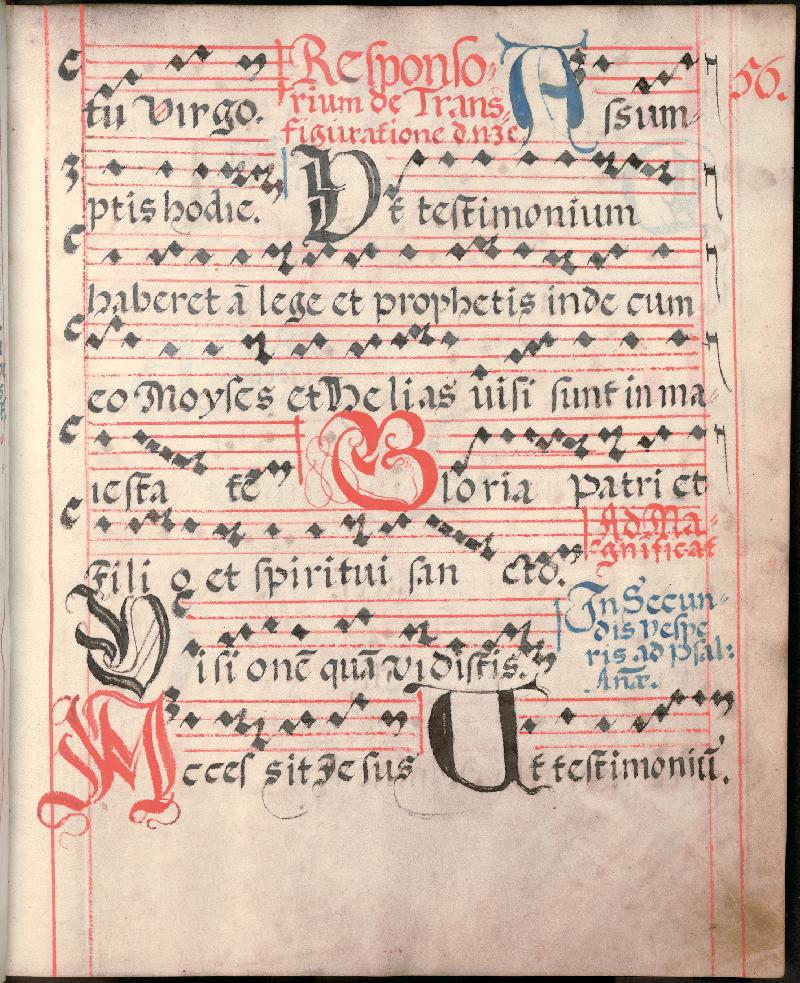 tu Virgo. Responso- Assum-
rium de Trans-
figuratione d.n̄ꝫe.
56.
ptis hodie. Vt testimonium
haberet ā lege et prophetis inde cum
eo Moyses et Helias uisi sunt in ma-
iesta te Gloria Patri et
filio et spiritui san cto. Ad Ma-
gnificat
Visi onē quā vidistis. In Secun-
dis vespe
ris ad Psal:
Anæ.
Acces sit Jesus Ut testimoniū.